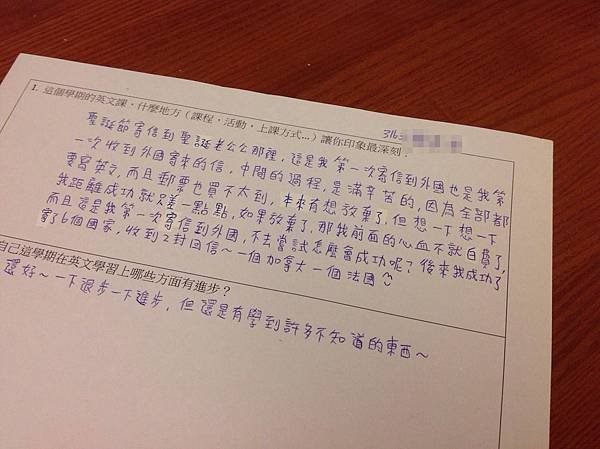 1. 這個學期的英文課,什麼地方(課程、活動、上課方式...)讓你印象最深刻.
聖誕節寄信到聖誕老公公那裡,這是我第一次寄信到外國也是我第
一次收到外國寄來的信,中間的過程,是滿辛苦的,因為全部都
要寫英文,而且郵票也買不太到,本來有想放棄了,但想一下想一下
我距離成功就只差一點點,如果放棄了,那我前面的心血不就白費了,
而且這是我第一次寄信到外國,不去嘗試怎麼會成功呢?後來我成功了
寄了6個國家,收到2封回信~一個加拿大一個法國
自己這學期在英文學習上哪些方面有進步?
還好~一下退步一下進步,但還是有學到許多不知道的東西~